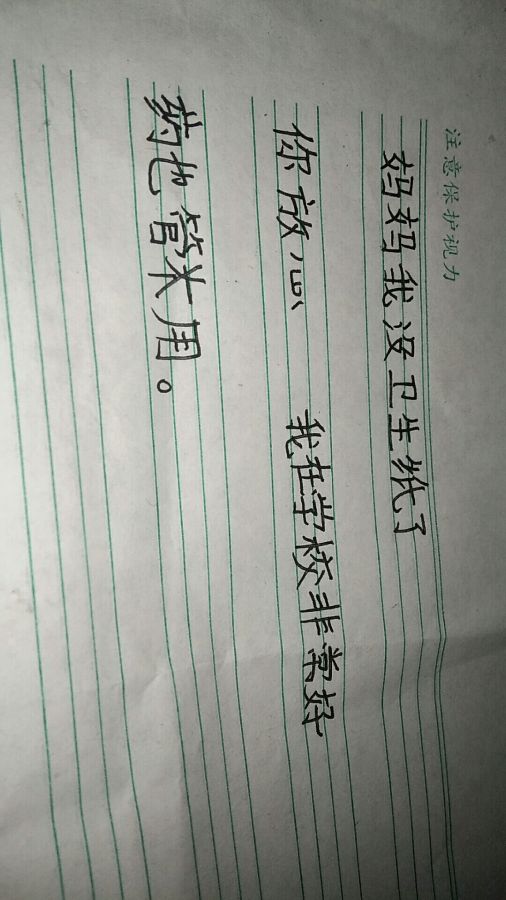 注意保护视力
妈妈我没卫生纸了
你放心 我在学校非常好
药也管大用。